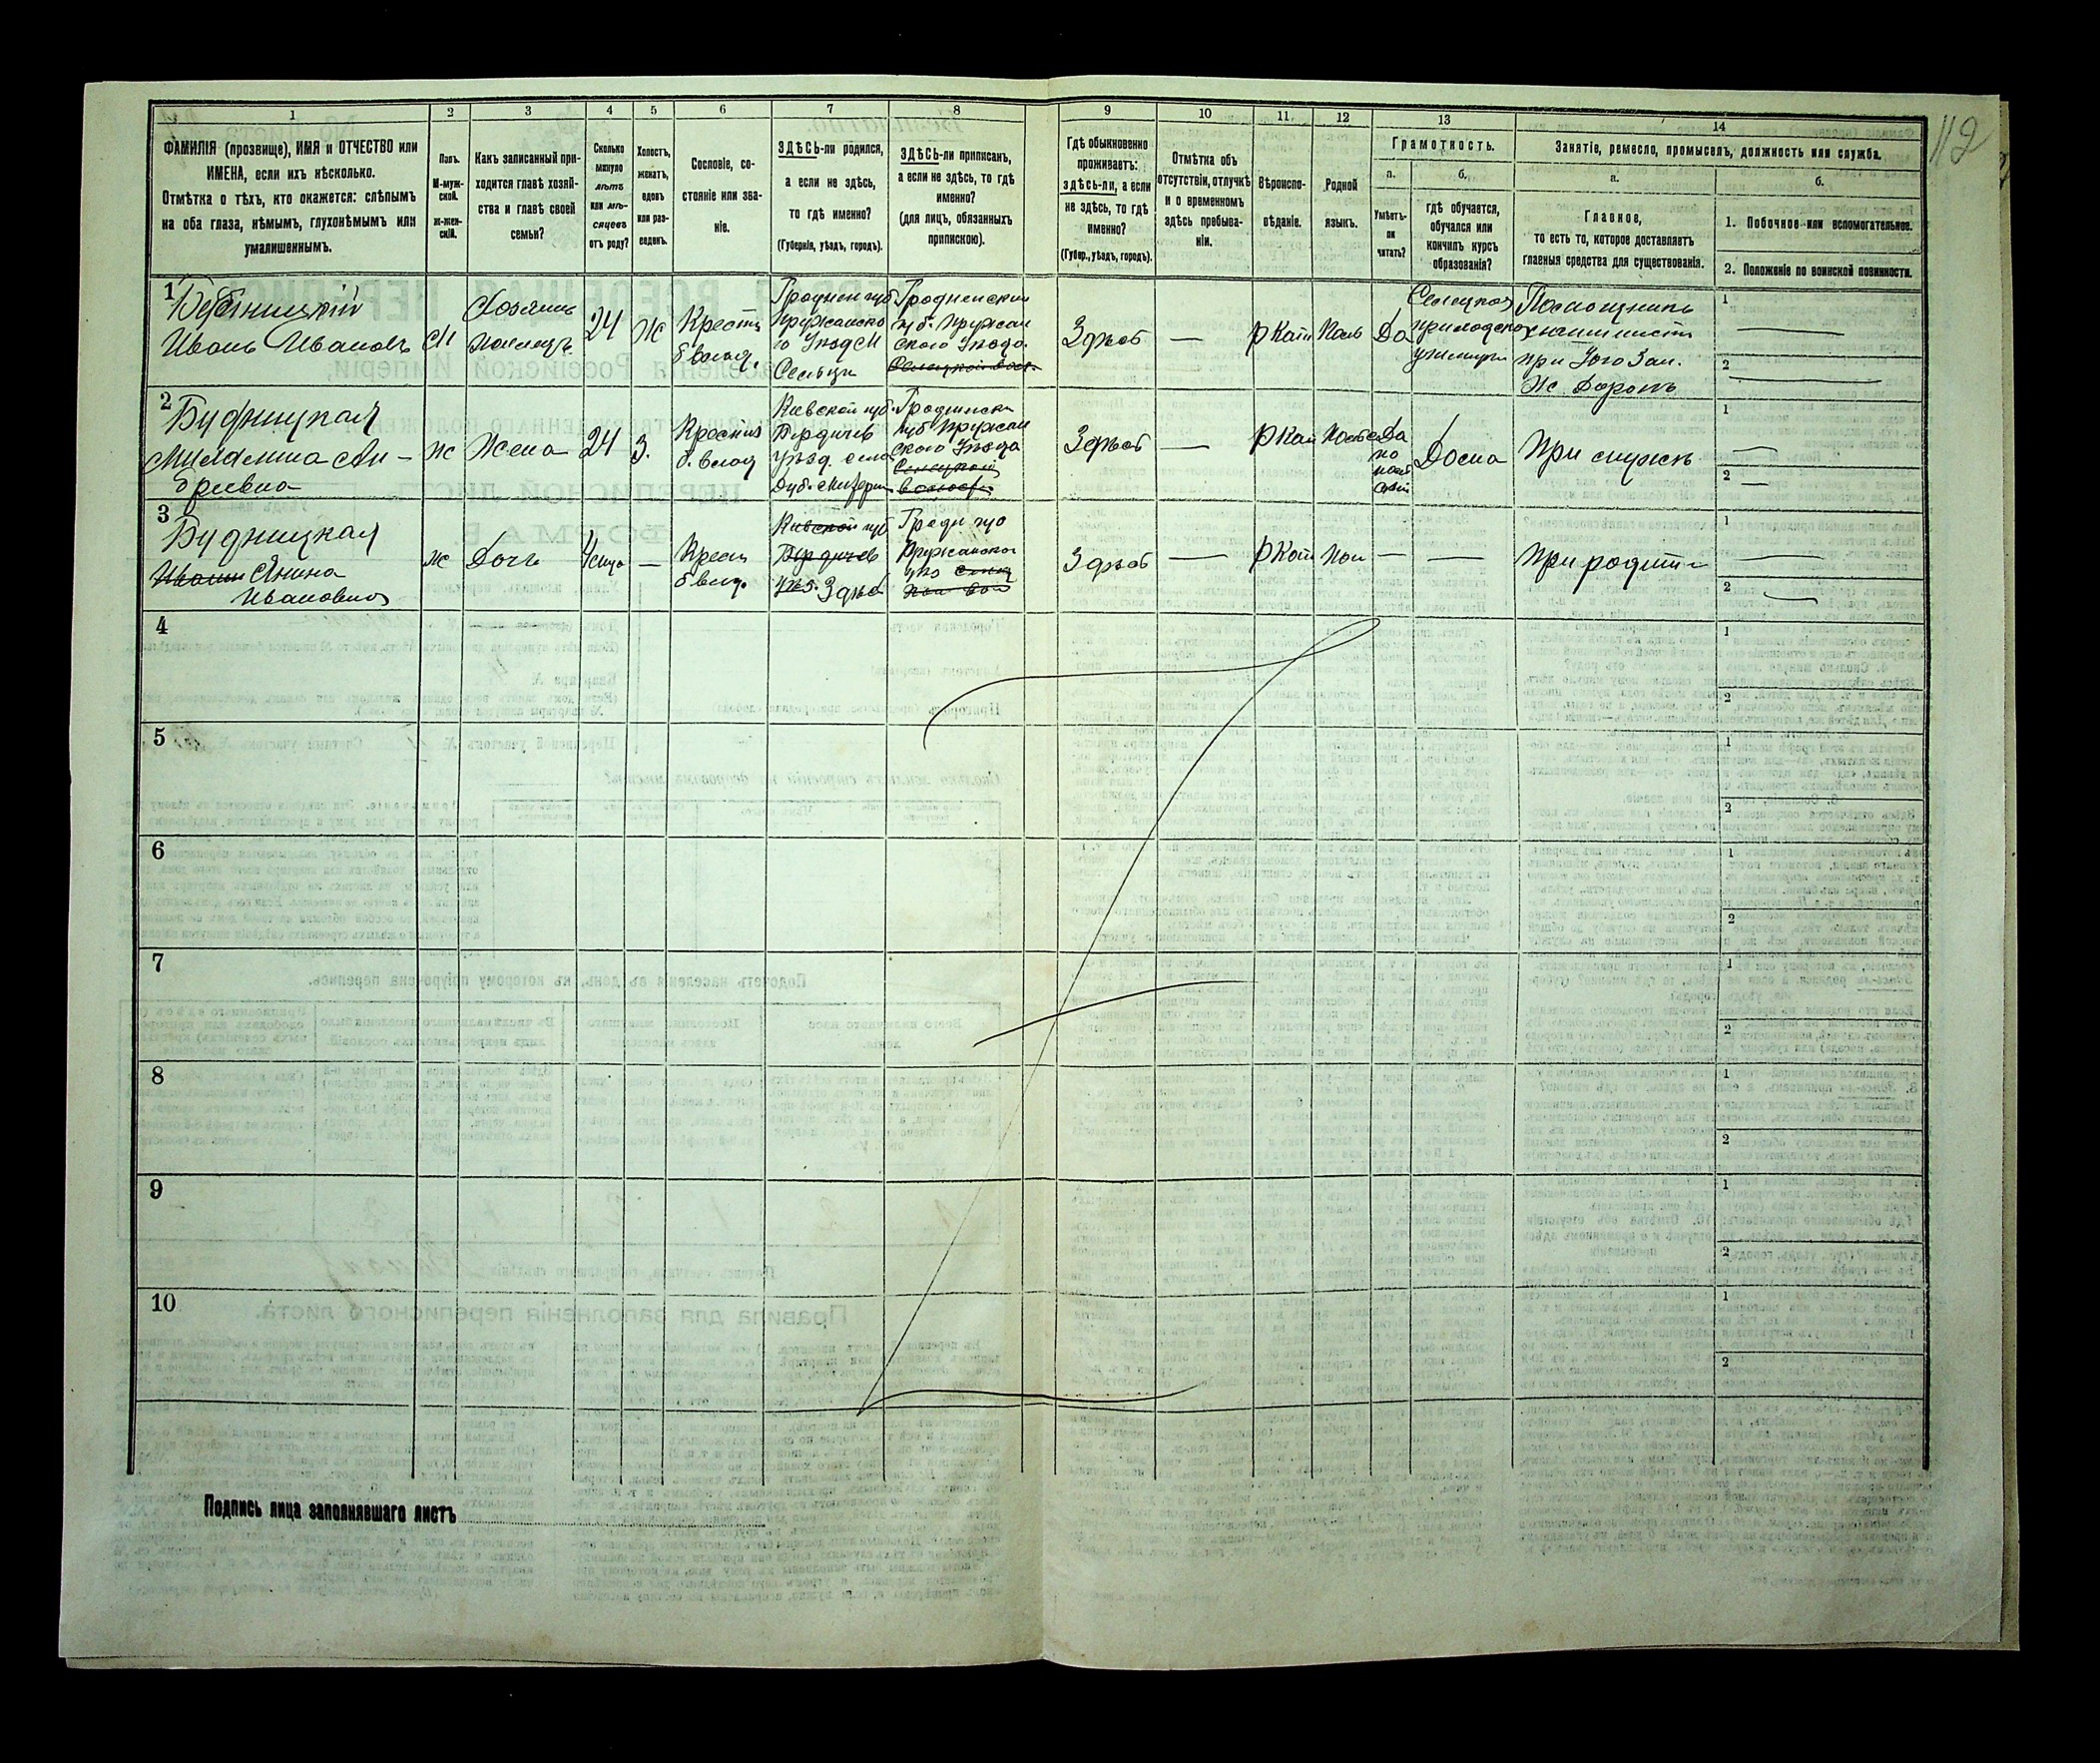 112
1
2
3
4
5
6
7
8
9
10
11
12
13
14
ФАМИЛІЯ (прозвище), ИМЯ и ОТЧЕСТВО или
ИМЕНА, если ихъ нѣсколько.
Отмѣтка о тѣхъ, кто окажется: слѣпымъ
на оба глаза, нѣмымъ, глухонѣмымъ или
умалишеннымъ.
Полъ.
М-муж-
ской.
ж-жен-
скій.
Какъ записанный при-
ходится главѣ хозяй-
ства и главѣ своей
семьи?
Сколько
минуло
лѣтъ
или мѣ-
сяцевъ
отъ роду?
Холостъ,
женатъ,
вдовъ
или раз-
веденъ.
Сословіе, со-
стояніе или зва-
ніе.
ЗДѢСЬ-ли родился,
а если не здѣсь,
то гдѣ именно?
(Губернія, уѣздъ, городъ).
ЗДѢСЬ-ли приписанъ,
а если не здѣсь, то гдѣ
именно?
(для лицъ, обязанныхъ
припискою).
Гдѣ обыкновенно
проживаетъ:
здѣсь-ли, а если
не здѣсь, то гдѣ
именно?
(Губер., уѣздъ, городъ).
Отмѣтка объ
отсутствіи, отлучкѣ
и о временномъ
здѣсь пребыва-
ніи.
Вѣроиспо-
вѣданіе.
Родной
языкъ.
Грамотность.
а.
Умѣетъ-
ли
читать?
б.
гдѣ обучается,
обучался или
кончилъ курсъ
образованія?
Занятіе, ремесло, промыселъ, должность или служба.
а.
Главное,
то есть то, которое доставляетъ
главныя средства для существованія.
б.
1. Побочное или вспомогательное.
2. Положеніе по воинской повинности.
1
Иванъ Ивановъ
М
Хозяинъ
24
Ж
Крест
б влад.
Гроднен губ
Пружанско
го Уѣзд М
Сельцы
Гродненской
губ. Пружан
ского Уѣзда
Селецкой вол.
Здѣсь
—
РКат
Поль
Да
Селецкое
приходско
училище
Помощникъ
Машиниста
при Юго Зап.
Ж Дорогъ
1
—
2
—
2
Будницкая
ж
Жена
24
З.
б. влад
Кіевской губ.
Бердичев
Уѣзд. села
Гроднинск
губ Пружан
ского Уѣзда
Селецкой
волости
Здѣсь
—
РКат
Да
по
Дома
При мужѣ
1
—
2
—
3
Будницкая
Янина
Ивановна
ж
Дочь
—
Крест
б влад.
Кіевской губ
Бердичев
Уѣз. Здѣсь
Гродн губ
Пружанског
Здѣсь
—
РКат
Пол
—
—
При родит
1
—
2
—
4
1
2
5
1
2
6
1
2
7
1
2
8
1
2
9
1
2
10
1
2
Подпись лица заполнявшаго листъ